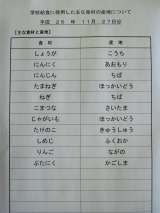 学校給食に使用した主な食材の産地について
平成 25年 11月 27日分
【主な食材と産地】
食材 産地
しょうが こうち
にんにく あおもり
にんじん ちば
たまねぎ ほっかいどう
ねぎ ちば
こまつな さいたま
じゃがいも ほっかいどう
たけのこ きゅうしゅう
しめじ ふくおか
りんご ながの
ぶたにく かごしま